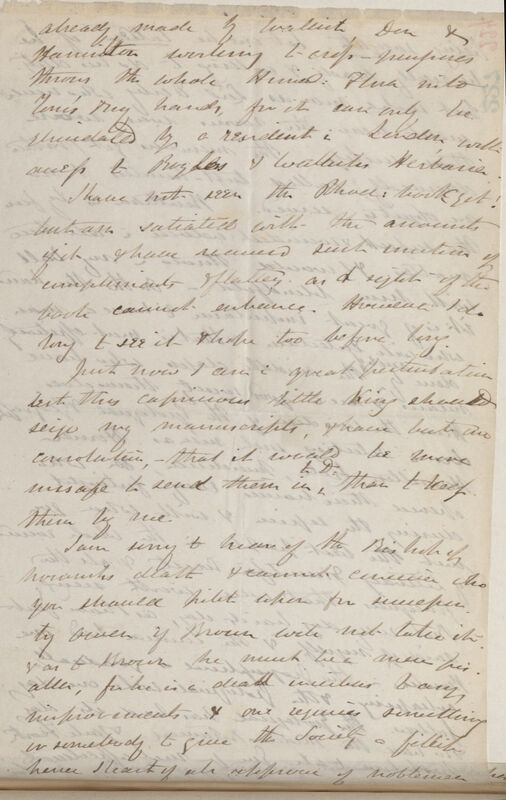 already made of Wallich, Don &
Hamilton working to cross-purposes
throws the whole Himal: Flora into
Tom's & my hands, for it can only be
elucidated by a resident in London with
access to Royles & Wallichs Herbaria.
I have not seen the Rhod: book yet!
but am satiated with the accounts
of it & have received such of
compliments & flattery as a sight of the
book cannot enhance. However I do
long to see it & hope too before long.
Just now I am in great perturbation
lest this capricious little King should
seize my manuscripts, & have but one
consolation, — that it would be more
unsafe to send them in to D., than to keep
them by me.
I am sorry to hear of the Bishop of
Norwichs death & cannot conceive who
you should pitch upon for successor
if Brown will not take it.
& as to Brown he must be a mere
, for he is a dead incubus to any
improvements & one requires something
or somebody to give the Society a fillip
hence I heartily approve of nobleman